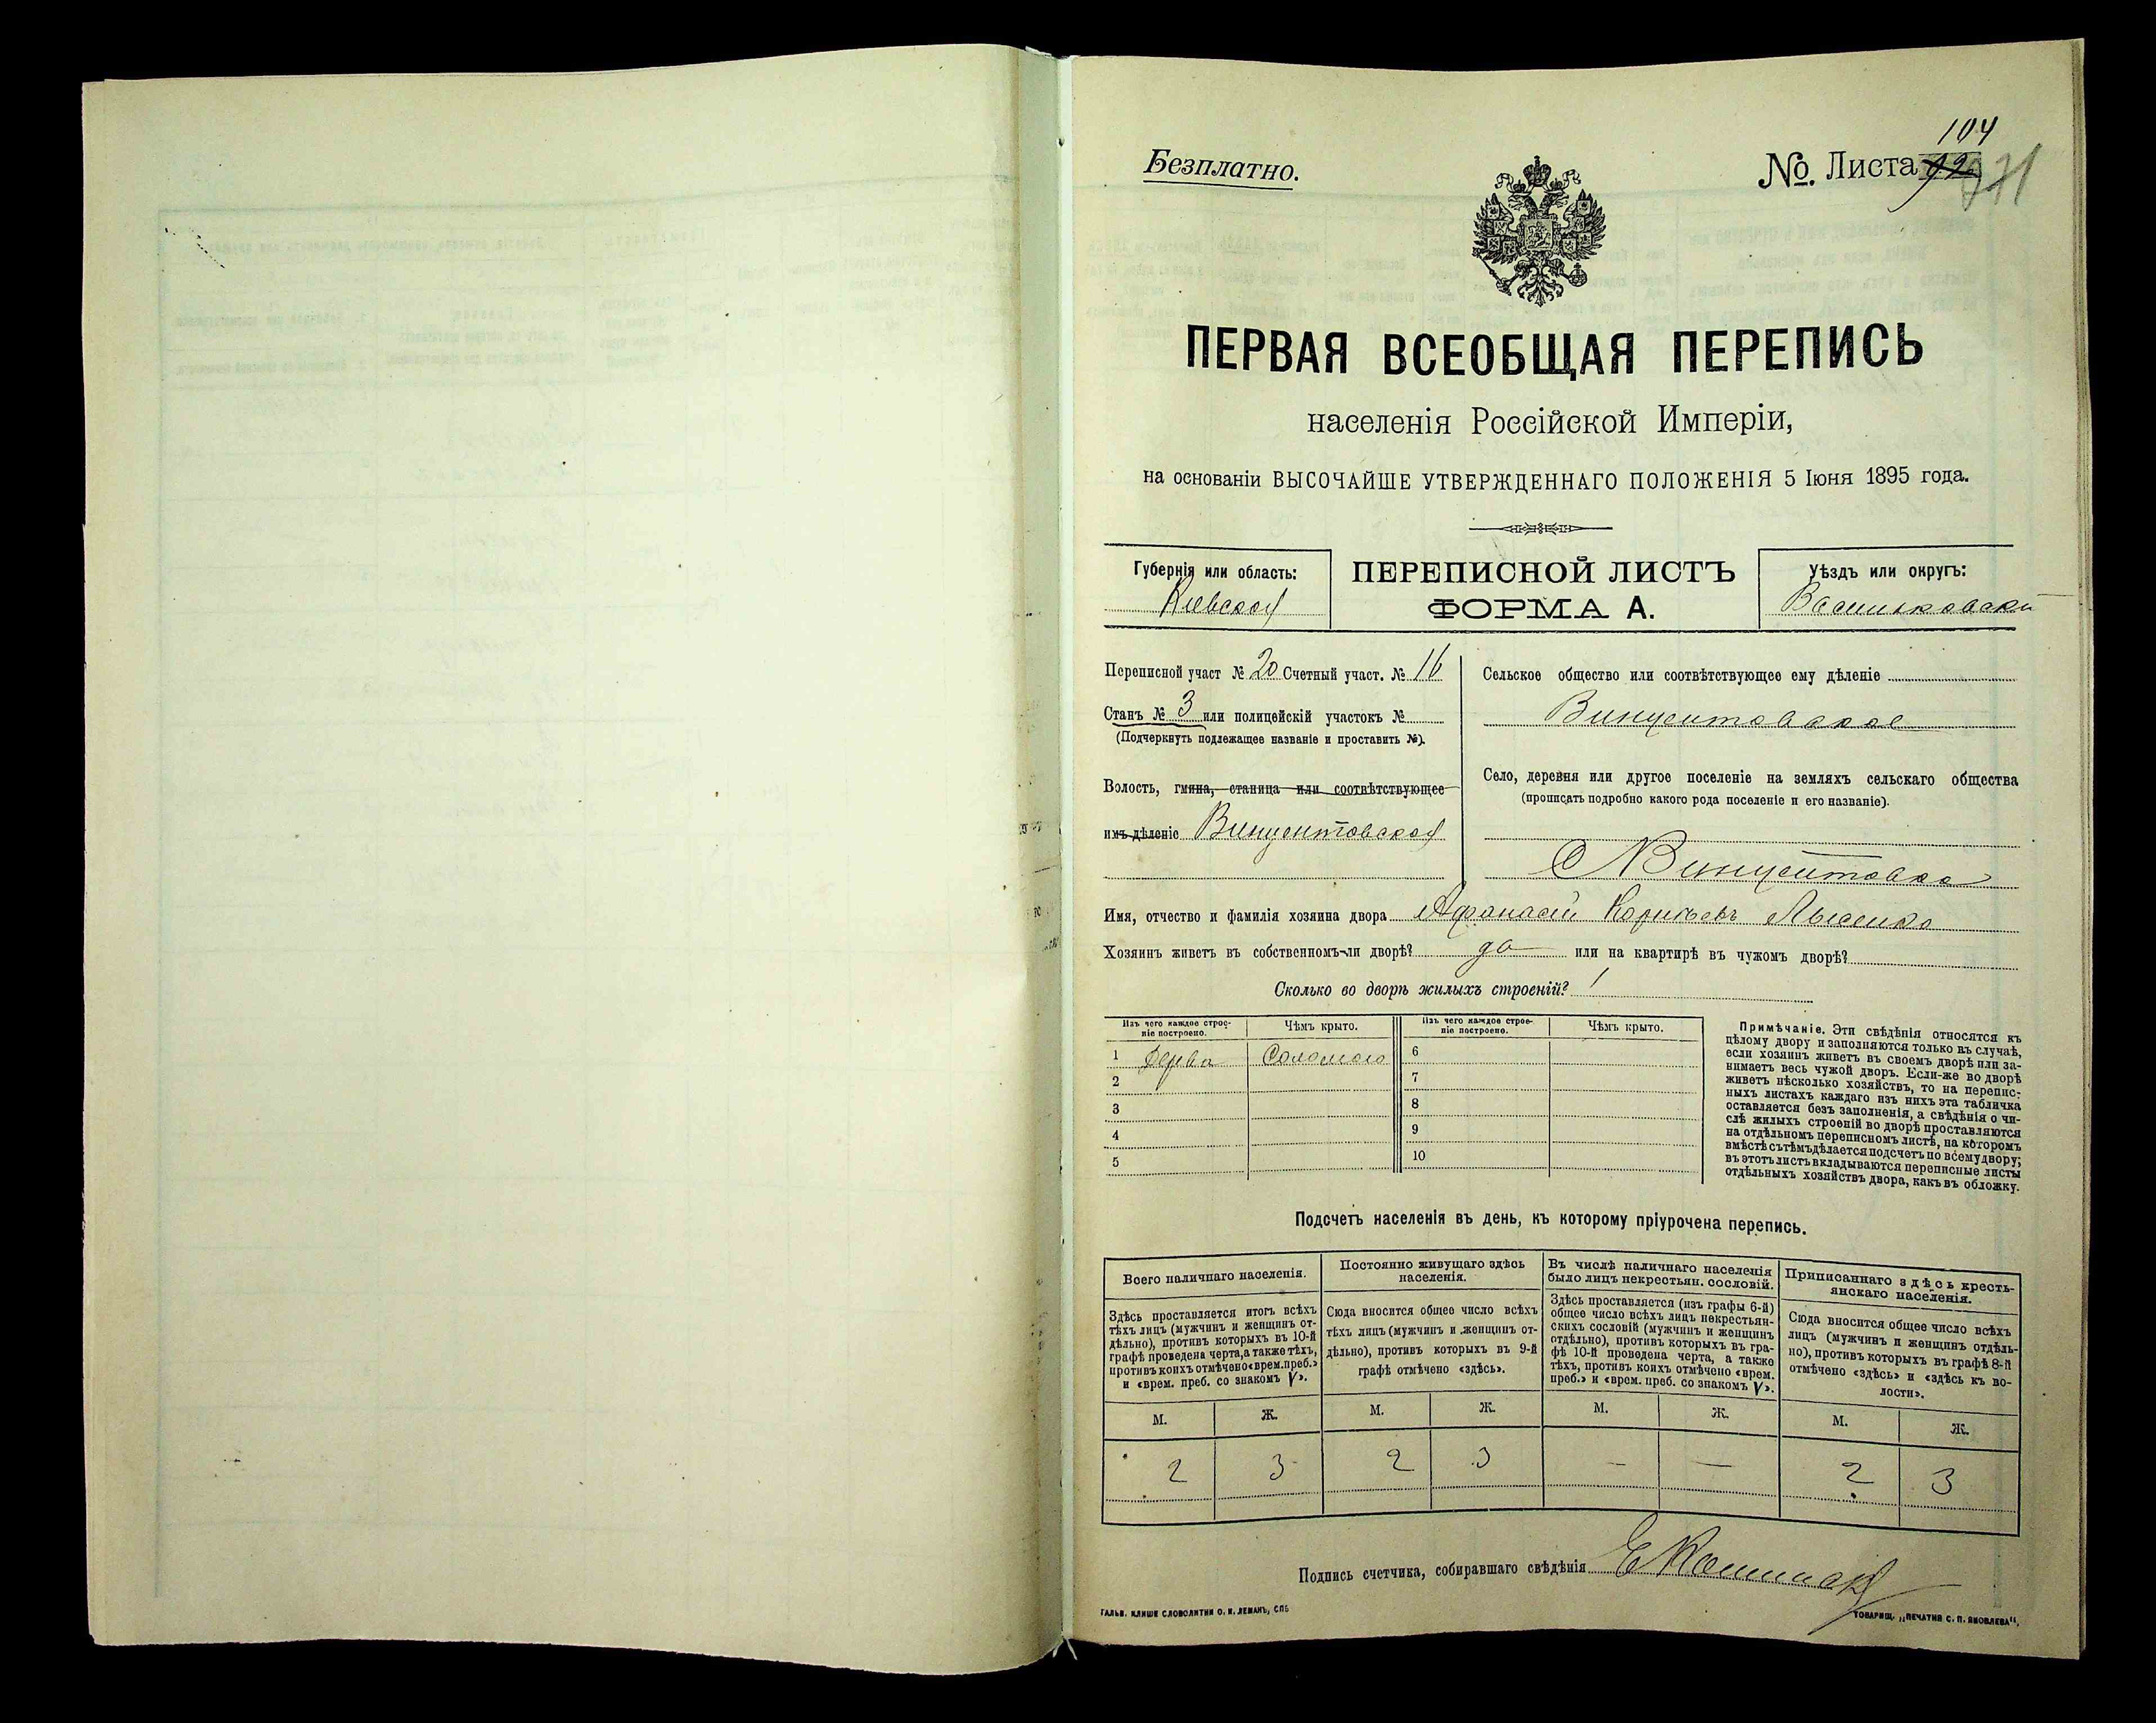 Безплатно.
104
№. Листа 92 271
ПЕРВАЯ ВСЕОБЩАЯ ПЕРЕПИСЬ
населенія Россійской Имперіи,
на основаніи ВЫСОЧАЙШЕ УТВЕРЖДЕННАГО ПОЛОЖЕНІЯ 5 Іюня 1895 года.
Губернія или область:
Кіевская
ПЕРЕПИСНОЙ ЛИСТЪ
ФОРМА А.
Уѣздъ или округъ:
Васильковскій
Переписной участ № 20 Счетный участ. № 16
Станъ № 3 или полицейскій участокъ №
(Подчеркнуть подлежащее названіе и проставить №).
Волость, гмина, станица или соотвѣтствующее
имъ дѣленіе Винцентовская
Сельское общество или соотвѣтствующее ему дѣленіе
Винцентовское
Село, деревня или другое поселеніе на земляхъ сельскаго общества
(прописать подробно какого рода поселеніе и его названіе).
С Винцентовка
Имя, отчество и фамилія хозяина двора Афанасій Корнѣевъ Лысенко
Хозяинъ живетъ въ собственномъ-ли дворѣ? да или на квартирѣ въ чужомъ дворѣ?
Сколько во дворѣ жилыхъ строеній? 1
Изъ чего каждое строе-
ніе построено.
Чѣмъ крыто.
Изъ чего каждое строе-
ніе построено.
Чѣмъ крыто.
1 Дерева Соломою 6
2 7
3 8
4 9
5 10
Примѣчаніе. Эти свѣдѣнія относятся къ
цѣлому двору и заполняются только въ случаѣ,
если хозяинъ живетъ въ своемъ дворѣ или за-
нимаетъ весь чужой дворъ. Если-же во дворѣ
живетъ нѣсколько хозяйствъ, то на перепис-
ныхъ листахъ каждаго изъ нихъ эта табличка
оставляется безъ заполненія, а свѣдѣнія о чи-
слѣ жилыхъ строеній во дворѣ проставляются
на отдѣльномъ переписномъ листѣ, на которомъ
вмѣстѣ съ тѣмъ дѣлается подсчетъ по всему двору;
въ этотъ листъ вкладываются переписные листы
отдѣльныхъ хозяйствъ двора, какъ въ обложку.
Подсчетъ населенія въ день, къ которому пріурочена перепись.
Всего наличнаго населенія.
Здѣсь проставляется итогъ всѣхъ
тѣхъ лицъ (мужчинъ и женщинъ от-
дѣльно), противъ которыхъ въ 10-й
графѣ проведена черта, а также тѣхъ,
противъ коихъ отмѣчено «врем. преб.»
и «врем. преб. со знакомъ V».
Постоянно живущаго здѣсь
населенія.
Сюда вносится общее число всѣхъ
тѣхъ лицъ (мужчинъ и женщинъ от-
дѣльно), противъ которыхъ въ 9-й
графѣ отмѣчено «здѣсь».
Въ числѣ наличнаго населенія
было лицъ некрестьян. сословій.
Здѣсь проставляется (изъ графы 6-й)
общее число всѣхъ лицъ некрестьян-
скихъ сословій (мужчинъ и женщинъ
отдѣльно), противъ которыхъ въ гра-
фѣ 10-й проведена черта, а также
тѣхъ, противъ коихъ отмѣчено «врем.
преб.» и «врем. преб. со знакомъ V».
Приписаннаго здѣсь кресть-
янскаго населенія.
Сюда вносится общее число всѣхъ
лицъ (мужчинъ и женщинъ отдѣль-
но), противъ которыхъ въ графѣ 8-й
отмѣчено «здѣсь» и «здѣсь къ во-
лости».
М. Ж. М. Ж. М. Ж. М. Ж.
2 3 2 3 — — 2 3
Подпись счетчика, собиравшаго свѣдѣнія
ГАЛЬВ. КЛИШЕ СЛОВОЛИТНИ О. И. ЛЕМАНЪ, СПБ
ТОВАРИЩ. „ПЕЧАТНЯ С. П. ЯКОВЛЕВА“.